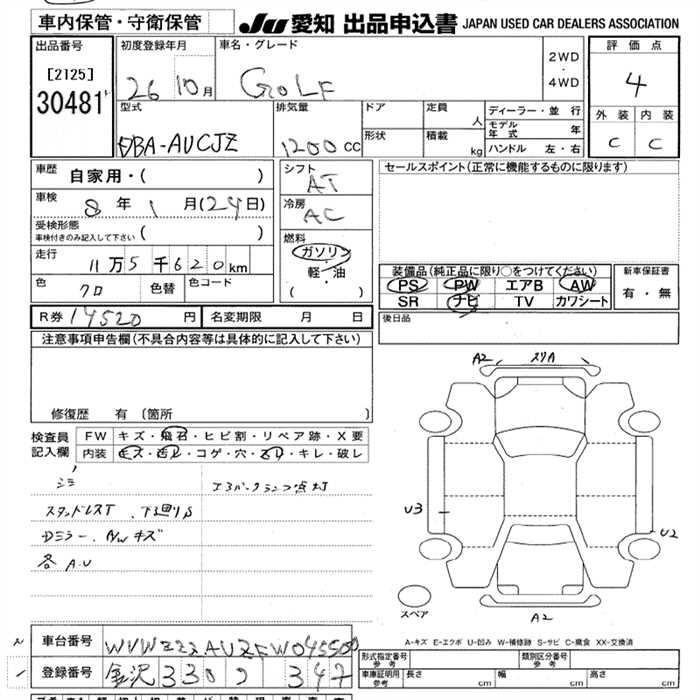 車内保管・守衛保管
JU 愛知 出品申込書 JAPAN USED CAR DEALERS ASSOCIATION
出品番号
[2125]
30481
初度登録年月
26 10月
車名・グレード
GOLF
2WD
・
4WD
評価点
4
外装 内装
C C
型式
DBA-AUCJZ
排気量
1200 cc
ドア
形状
定員
人
積載
kg
ディーラー・並行
モデル年式 年
ハンドル 左・右
車歴
自家用・( )
車検
8年 1月(24日)
受検形態
車検付きのみ記入して下さい ( )
走行
11万5千620km
色
クロ
色替
色コード
シフト
AT
冷房
AC
燃料
ガソリン
・
軽・油
( )
セールスポイント(正常に機能するものに限ります)
装備品(純正品に限り○をつけてください)
PS PW エアB AW
SR ナビ TV カワシート
新車保証書
有・無
R券 14520 円
名変期限 月 日
後日品
注意事項申告欄(不具合内容等は具体的に記入して下さい)
修復歴 有 〔箇所 〕
検査員
記入欄
FW キズ・飛石・ヒビ割・リペア跡・X要
内装 キズ・汚レ・コゲ・穴・スレ・キレ・破レ
シミ
エアバックランプ点灯
スタッドレスT 下廻りS
Dミラー、A/Wキズ
各A.U
A2 スリA
U3
U2
スペア
A2
A-キズ E-エクボ U-凹み W-補修跡 S-サビ C-腐食 XX-交換済
車台番号 WVWZZZAUZFW045500
登録番号 金沢 330 つ 347
形式指定番号
参考
類別区分番号
参考
車庫証明用
参考
長さ cm 幅 cm 高さ cm